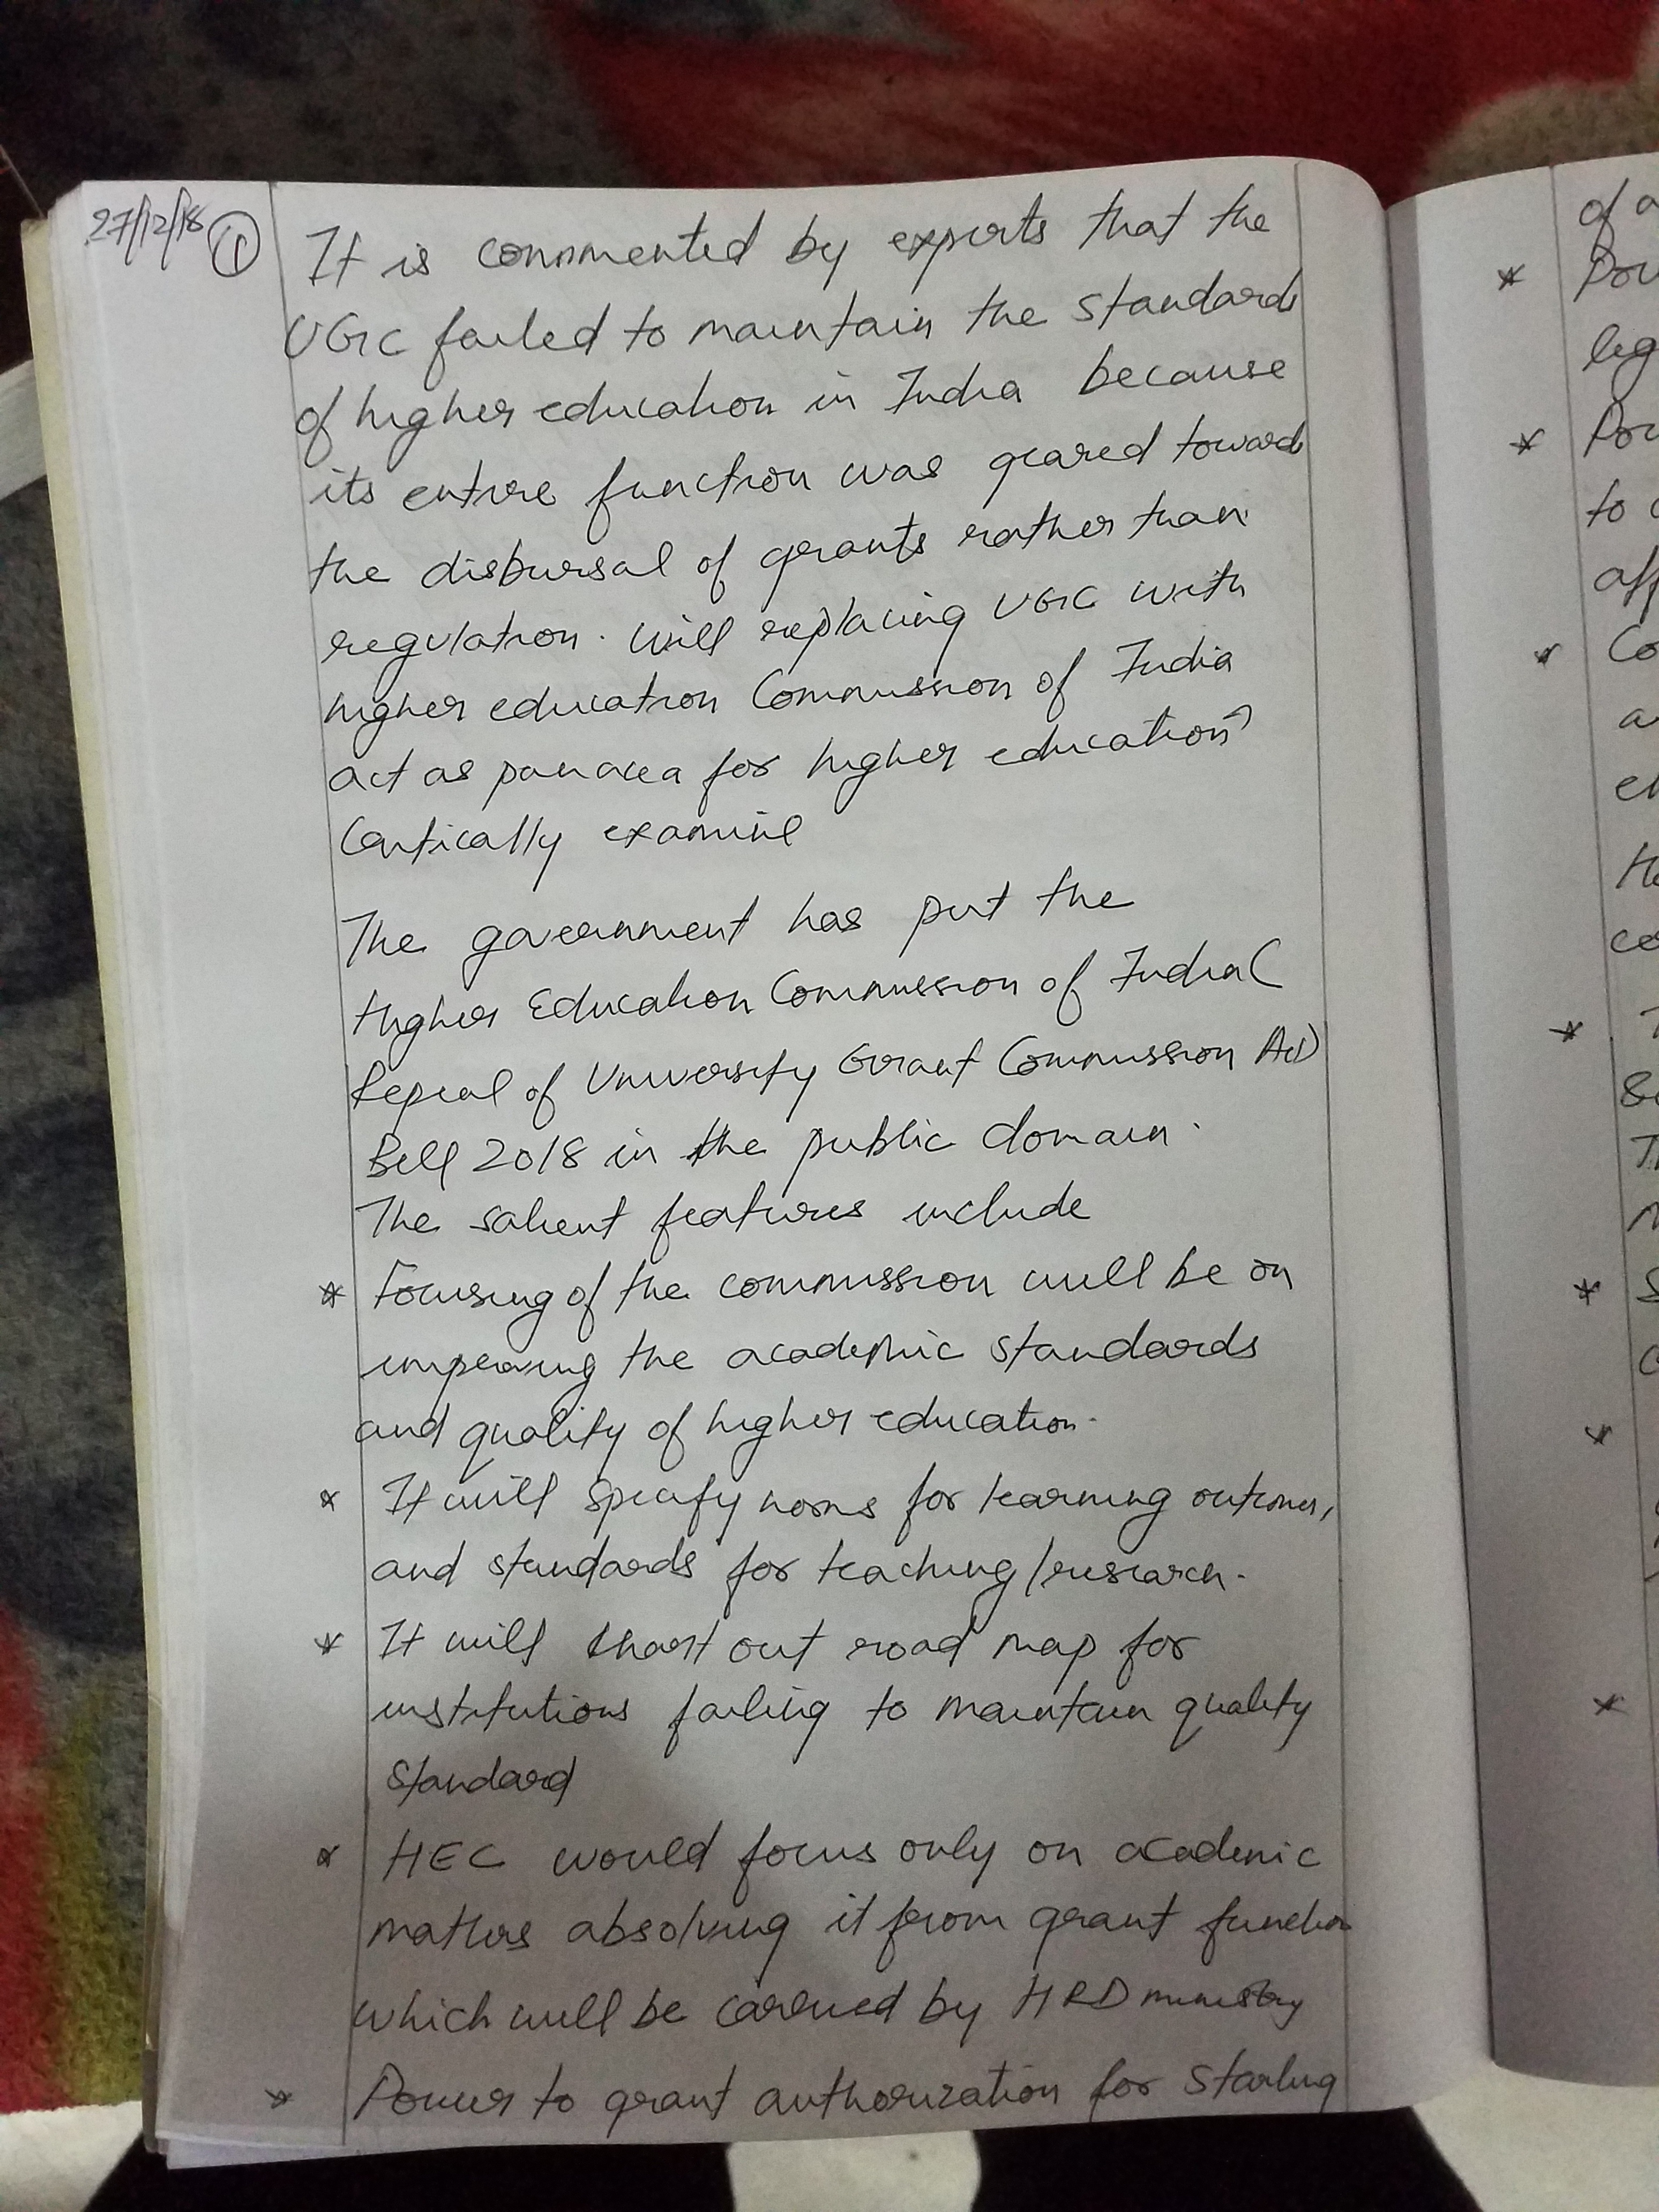 27/12/18 ①
It is commented by experts that the
UGC failed to maintain the standards
of higher education in India because
its entire function was geared towards
the disbursal of grants rather than
regulation. Will replacing UGC with
higher education Commission of India
act as panacea for higher education?
Critically examine
The government has put the
Higher Education Commission of India (
Repeal of University Grant Commission Act)
Bill 2018 in the public domain.
The salient features include
* Focusing of the commission will be on
improving the academic standards
and quality of higher education.
* It will specify norms for learning outcomes,
and standards for teaching/research.
* It will chart out road map for
institutions failing to maintain quality
standard
* HEC would focus only on academic
matters absolving it from grant function
which will be carried by HRD ministry
* Power to grant authorization for starting
of a
*
leg
*
to
aff
*
*
*
*
*